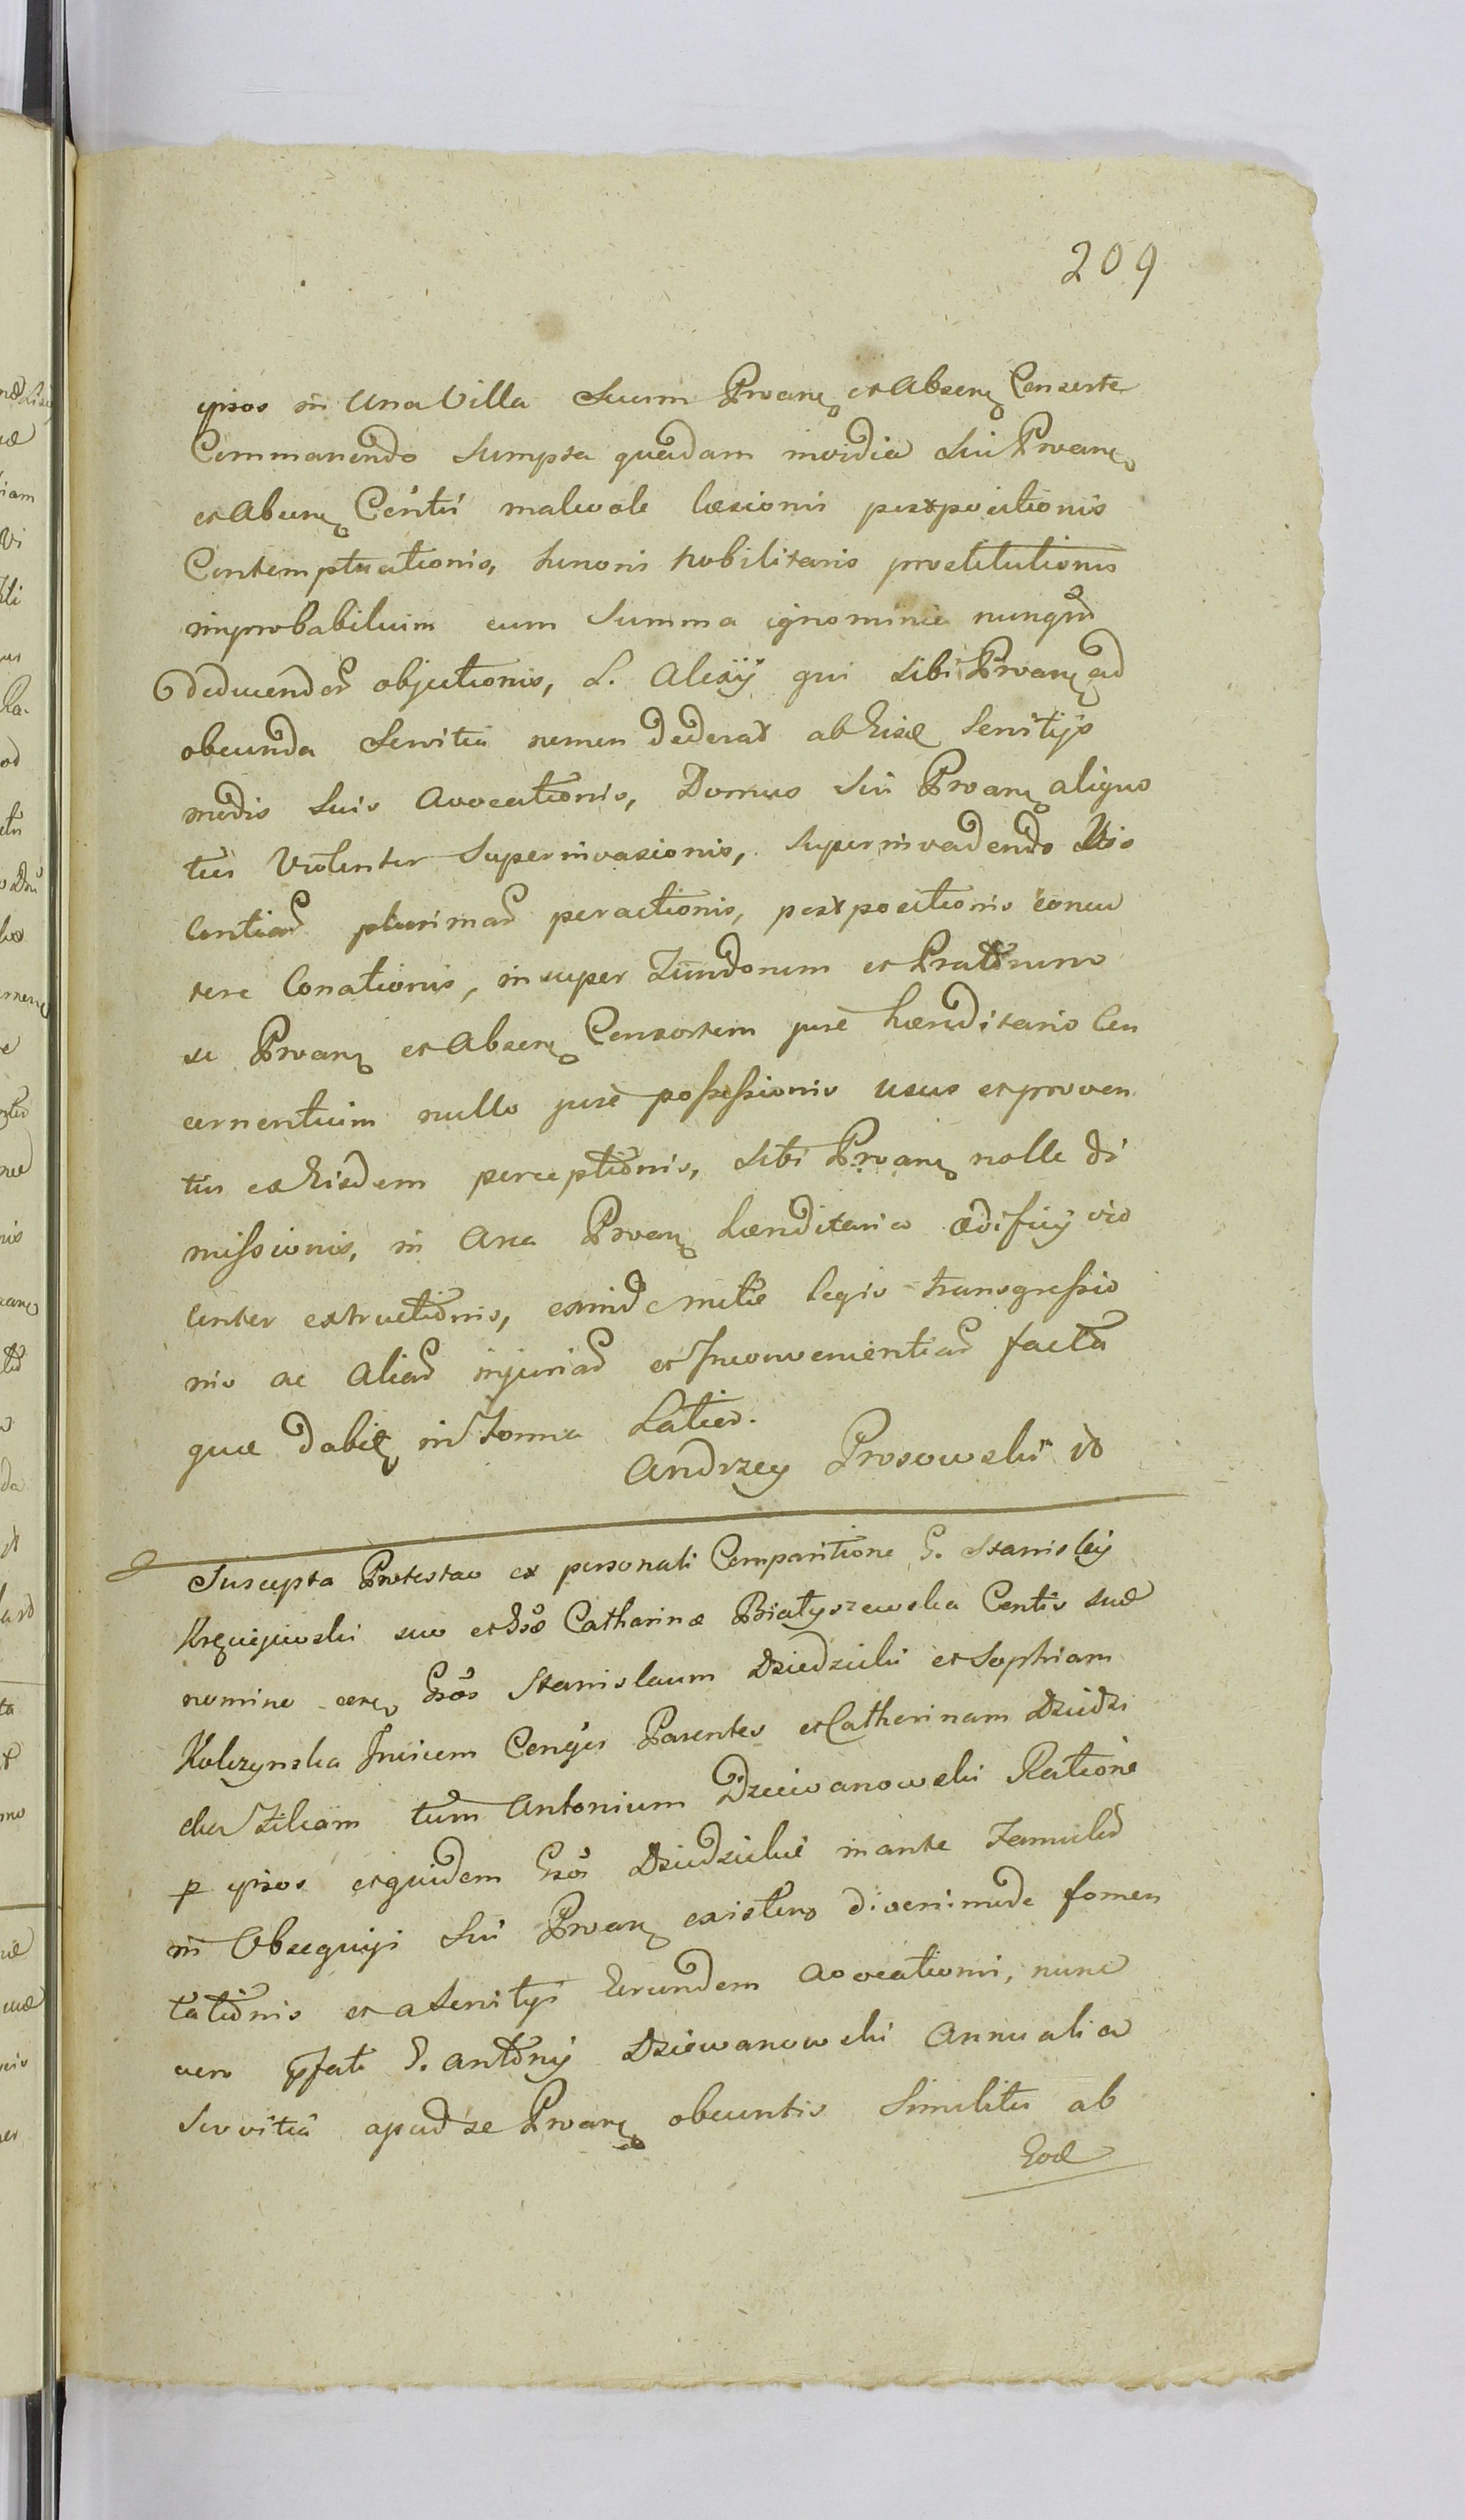 209
ipsos in una Villa Suum Proanẽ et Absenẽ Consorte
Commanendo Sumpta quadam invidia Sui Proanẽ
et Absenẽ Contis malevole læsionis postpositionis
Contemptuationis, honoris Nobilitaris prostitutionis
improbabilium cum Summa ignominia nunqm̃
deducendaȝ objectionis, L. Alexÿ qui Sibi Proanẽ ad
obeunda Servitia nomen dederat ab hisce Servitÿs
modis Suis avocationis, Domus Sui Proanẽ aliquo
ties Violenter Superinvasionis, Superinvadendo Vio
lentiaȝ plurimaȝ peractionis, postpositionis concu
tere Conationis, insuper Fundorum et Pratorum
se Proanẽ et Absenẽ Consortem jure hæreditario Con
cernentium nullo jure possessionis usus et proven
tus ex Eisdem perceptionis, Sibi Proanẽ nolle di
missionis, in Area Proanẽ hæreditaria ædificÿ vio
lenter extructionis, exinde metæ legis transgressio
nis ac aliaȝ injuriaȝ et Inconvenientiaȝ facta
quæ dabit̃ in Forma Latius.
Andrzey Prosowski id
Suscepta Protestao ex personali Comparitione G. Stanislai
suo et Gsæ Catharinæ Białyszewska Contis suæ
nomine cerẽ Gsos Stanislaum Dziedzicki et Sophiam
Kolczynska Invicem Conjges Parentes et Catherinam Dziedzi
cka Filiam tum Antonium Dziewanowski Ratione
p ipsos et quidem Gsos Dziedzickie in ante Famulaȝ
in Obsequijs Sui Proanẽ existens divenimode fomen
tationis et a Servitÿs Eorundem avocationis, nunc
vero pfati G. Antonÿ Dziewanowski Annualia
Servitia apud se Proanẽ obeuntis Similiter ab
Eod